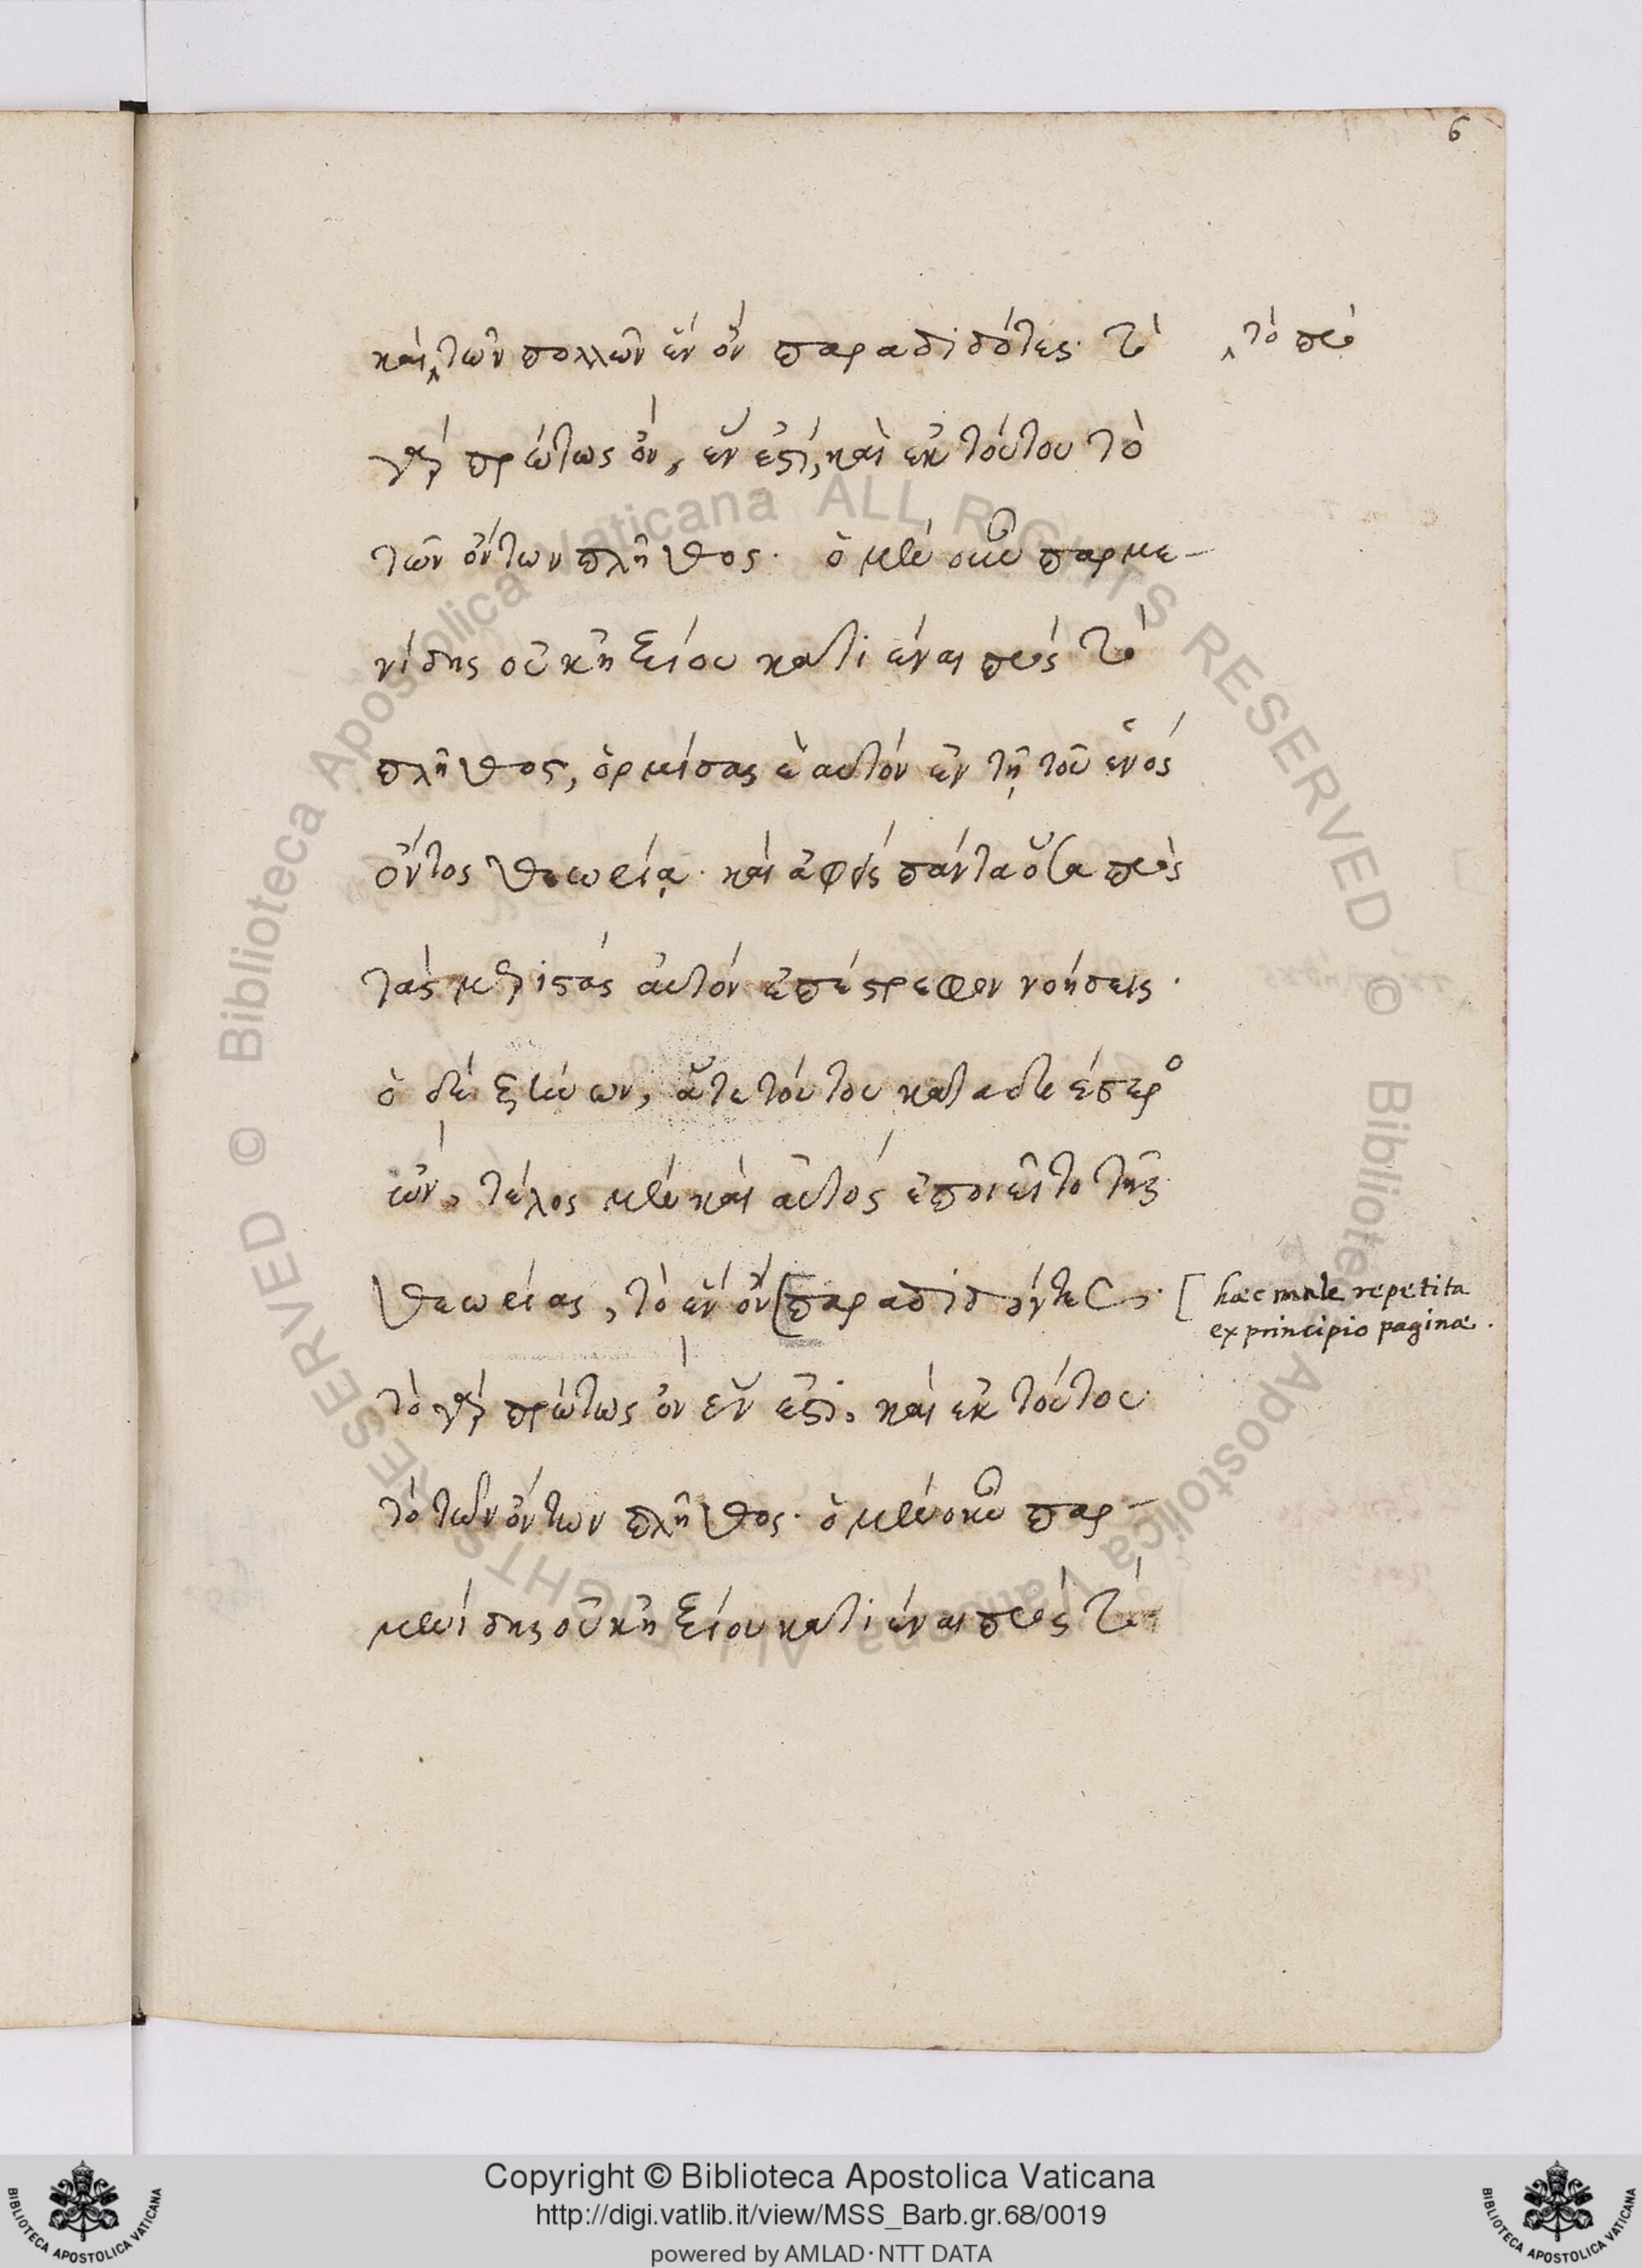 6
καὶ ‸τῶν πολλῶν ἓν ὂν παραδιδότες· τὸ ‸τὸ πρὸ
γὰρ πρώτως ὄν, ἕν ἐστι, καὶ ἐκ τούτου τὸ
τῶν ὄντων πλῆθος· ὁ μὲν οὖν παρμε-
νίδης οὐκ ἠξίου κατιέναι πρὸς τὸ
πλῆθος, ὁρμίσας ἑαυτὸν ἐν τῇ τοῦ ἑνὸς
ὄντος θεωρίᾳ· καὶ ἀφεὶς πάντα ὅσα πρὸς
τὰς μεριστὰς αὐτὸν ἐπέστρεφον νοήσεις·
ὁ δὲ ζήνων, ἅτε τούτου καταδεέστερο
ὤν, τέλος μὲν καὶ αὐτὸς ἐποιεῖτο τῆς
θεωρίας, τὸ ἓν ὄν [παραδιδόντες·
[ haec male repetita
ex principio paginae.
τὸ γὰρ πρώτως ὂν ἕν ἐστι, καὶ ἐκ τούτου
τὸ τῶν ὄντων πλῆθος· ὁ μὲν οὖν παρ-
μενίδης οὐκ ἠξίου κατιέναι πρὸς τὸ
Biblioteca Apostolica Vaticana ALL RIGHTS RESERVED ©
Biblioteca Apostolica Vaticana ALL RIGHTS RESERVED ©
Copyright © Biblioteca Apostolica Vaticana
http://digi.vatlib.it/view/MSS_Barb.gr.68/0019
powered by AMLAD·NTT DATA
BIBLIOTECA APOSTOLICA VATICANA
BIBLIOTECA APOSTOLICA VATICANA